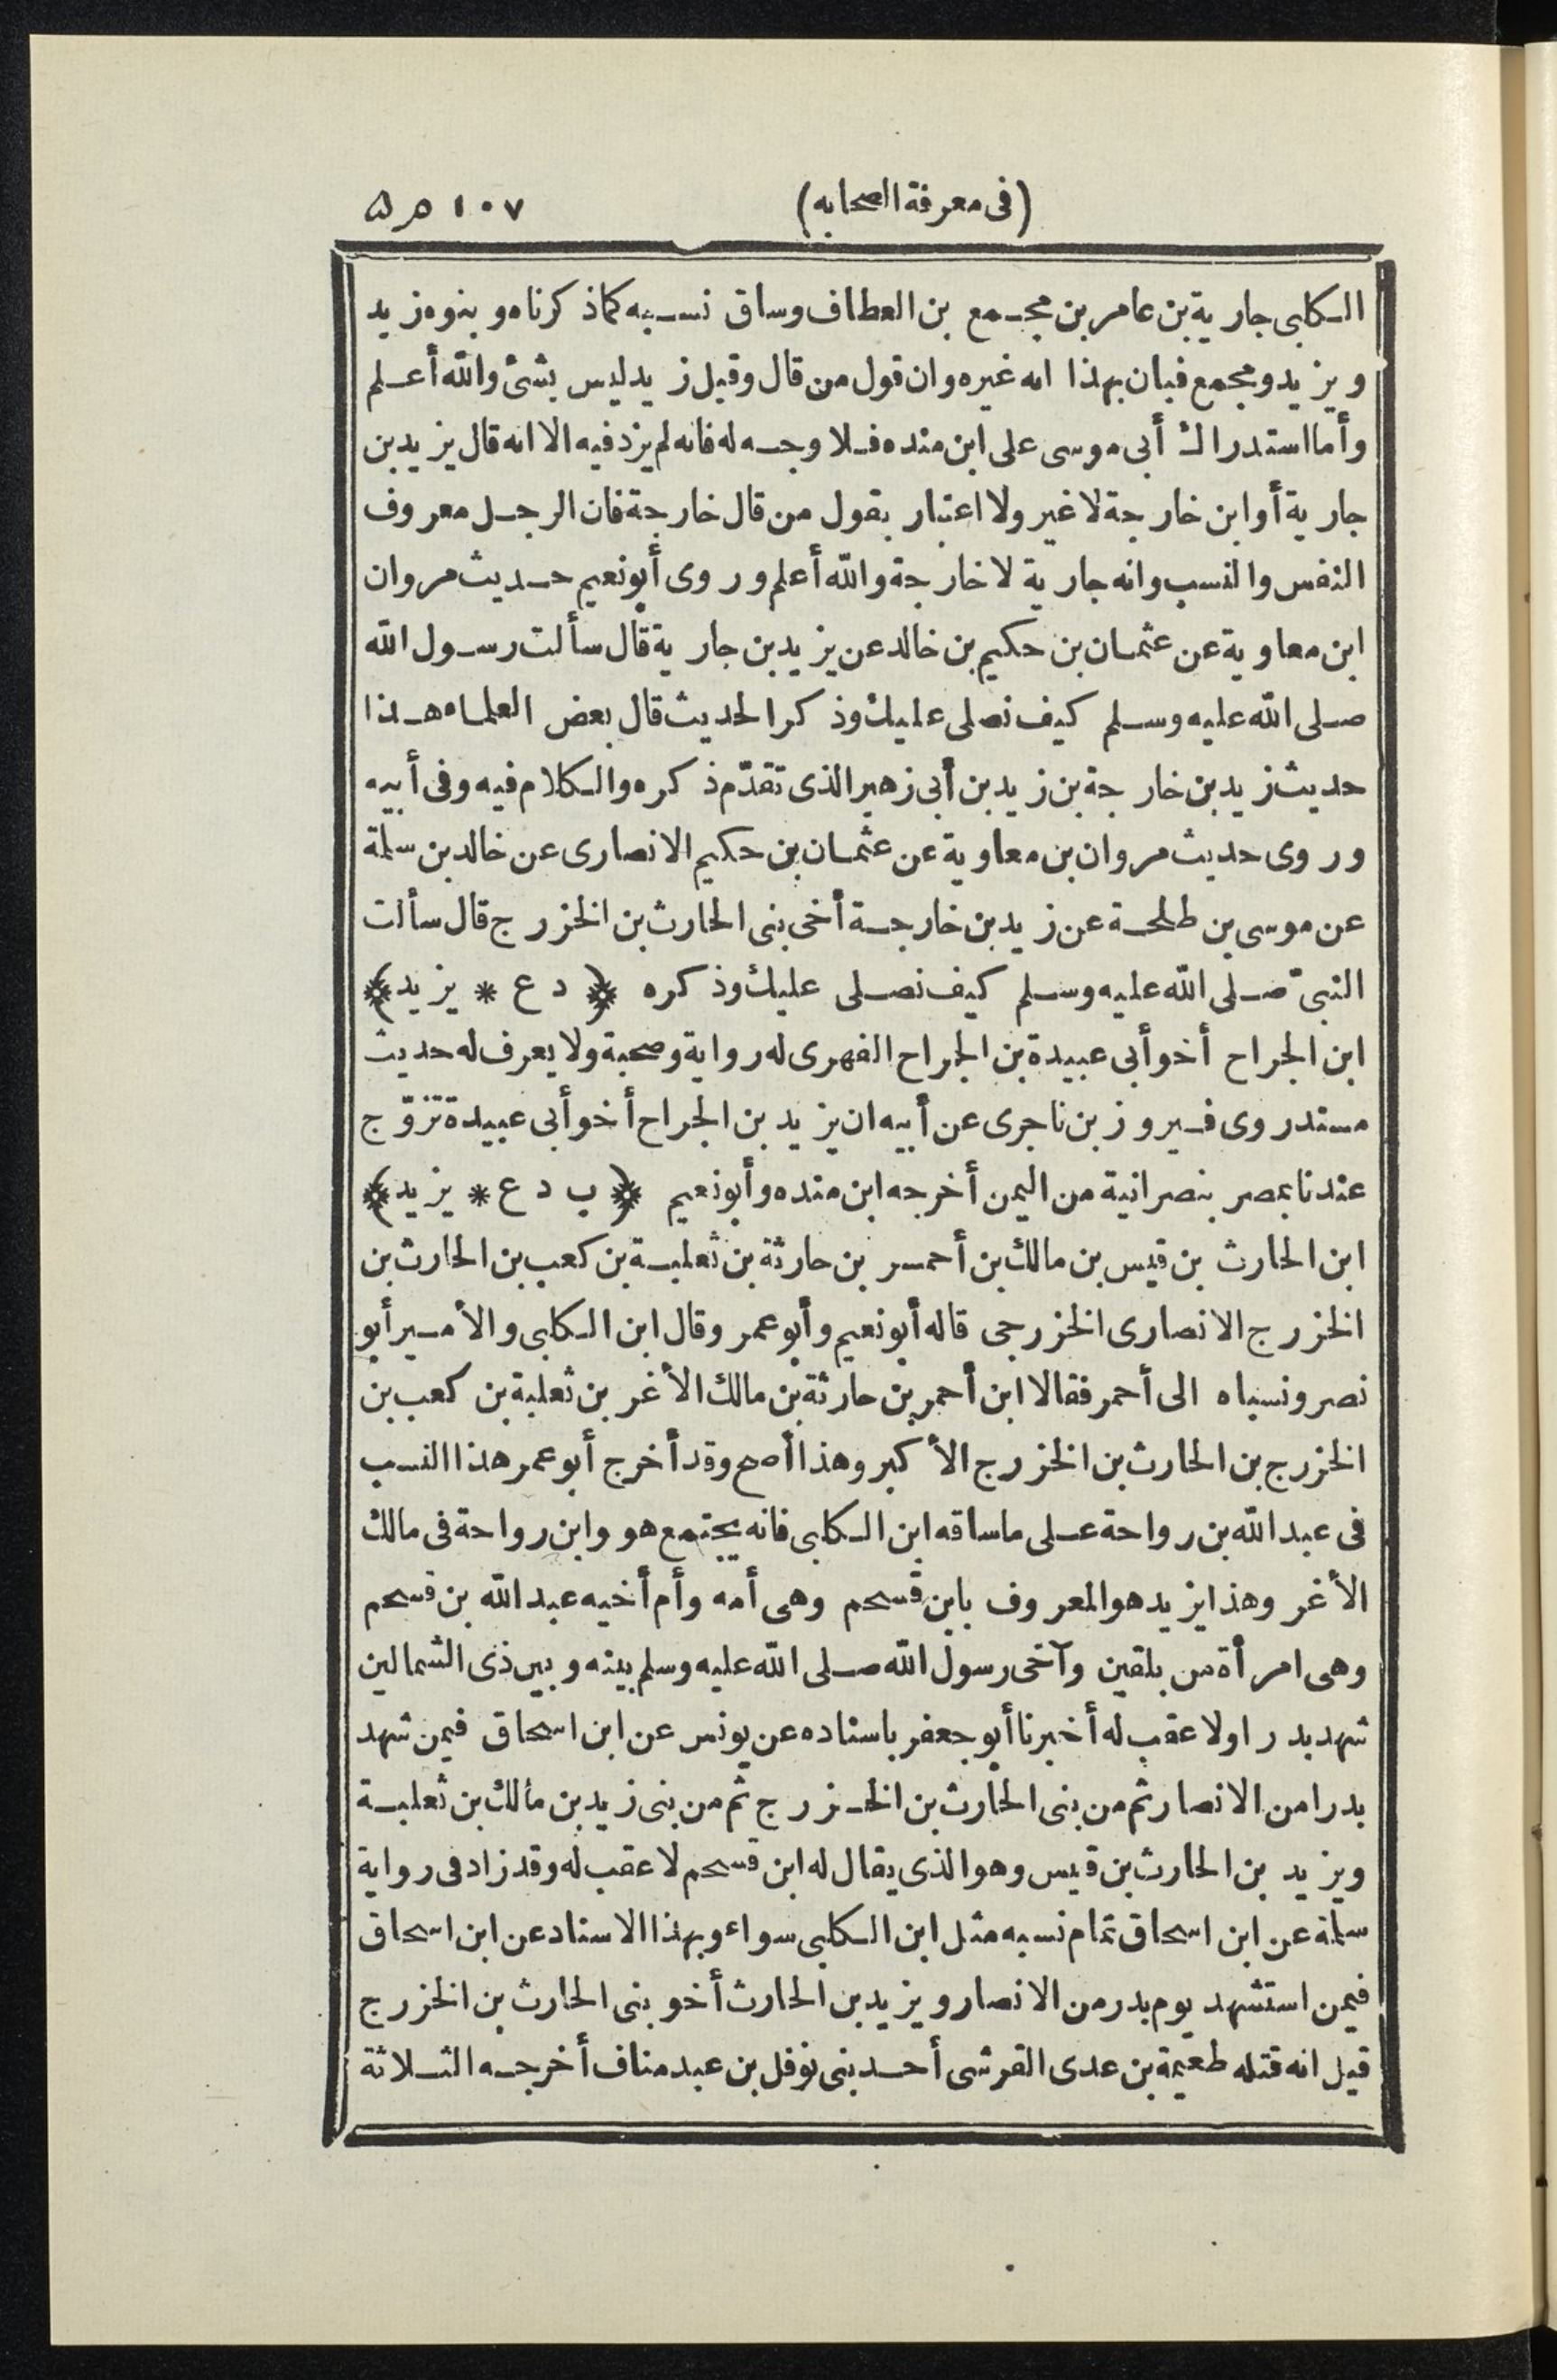 (فى معرفة الصحابه) ١٠٧
الكلبى جارية بن عامر بن مجمع بن العطاف وساق نسبه كما ذكرناه وبنوه زيد
ويزيد ومجمع فبان بهذا انه غيره وان قول من قال وقيل زيد ليس بشئ والله أعلم
وأما استدراك أبى موسى على ابن منده فلا وجه له فانه لم يزد فيه الا انه قال يزيد بن
جارية أو ابن خارجة لا غير ولا اعتبار بقول من قال خارجة فان الرجل معروف
النفس والنسب وانه جارية لا خارجة والله أعلم وروى أبو نعيم حديث مروان
ابن معاوية عن عثمان بن حكيم بن خالد عن يزيد بن جارية قال سألت رسول الله
صلى الله عليه وسلم كيف نصلى عليك وذكر الحديث قال بعض العلماء هذا
حديث زيد بن خارجة بن زيد بن أبى زهير الذى تقدّم ذكره والكلام فيه وفى أبيه
وروى حديث مروان بن معاوية عن عثمان بن حكيم الانصارى عن خالد بن سلمة
عن موسى بن طلحة عن زيد بن خارجة أخى بنى الحارث بن الخزرج قال سألت
النبىّ صلى الله عليه وسلم كيف نصلى عليك وذكره ﴿ د ع * يزيد﴾
ابن الجراح أخو أبى عبيدة بن الجراح الفهرى له رواية وصحبة ولا يعرف له حديث
مسند روى فيروز بن ناجرى عن أبيه ان يزيد بن الجراح أخو أبى عبيدة تزوّج
عندنا بمصر بنصرانية من اليمن أخرجه ابن منده وأبو نعيم ﴿ ب د ع * يزيد﴾
ابن الحارث بن قيس بن مالك بن أحمر بن حارثة بن ثعلبة بن كعب بن الحارث بن
الخزرج الانصارى الخزرجى قاله أبو نعيم وأبو عمر وقال ابن الكلبى والأمير أبو
نصر ونسباه الى أحمر فقالا ابن أحمر بن حارثة بن مالك الأغر بن ثعلبة بن كعب بن
الخزرج بن الحارث بن الخزرج الأكبر وهذا أصح وقد أخرج أبو عمر هذا النسب
فى عبد الله بن رواحة على ما ساقه ابن الكلبى فانه يجتمع هو وابن رواحة فى مالك
الأغر وهذا يزيد هو المعروف بابن فسحم وهى أمه وأم أخيه عبد الله بن فسحم
وهى امرأة من بلقين وآخى رسول الله صلى الله عليه وسلم بينه وبين ذى الشمالين
شهد بدرا ولا عقب له أخبرنا أبو جعفر باسناده عن يونس عن ابن اسحاق فيمن شهد
بدرا من الانصار ثم من بنى الحارث بن الخزرج ثم من بنى زيد بن مالك بن ثعلبة
ويزيد بن الحارث بن قيس وهو الذى يقال له ابن فسحم لا عقب له وقد زاد فى رواية
سلمة عن ابن اسحاق تمام نسبه مثل ابن الكلبى سواء وبهذا الاسناد عن ابن اسحاق
فيمن استشهد يوم بدر من الانصار ويزيد بن الحارث أخو بنى الحارث بن الخزرج
قيل انه قتله طعيمة بن عدى القرشى أحد بنى نوفل بن عبد مناف أخرجه الثلاثة